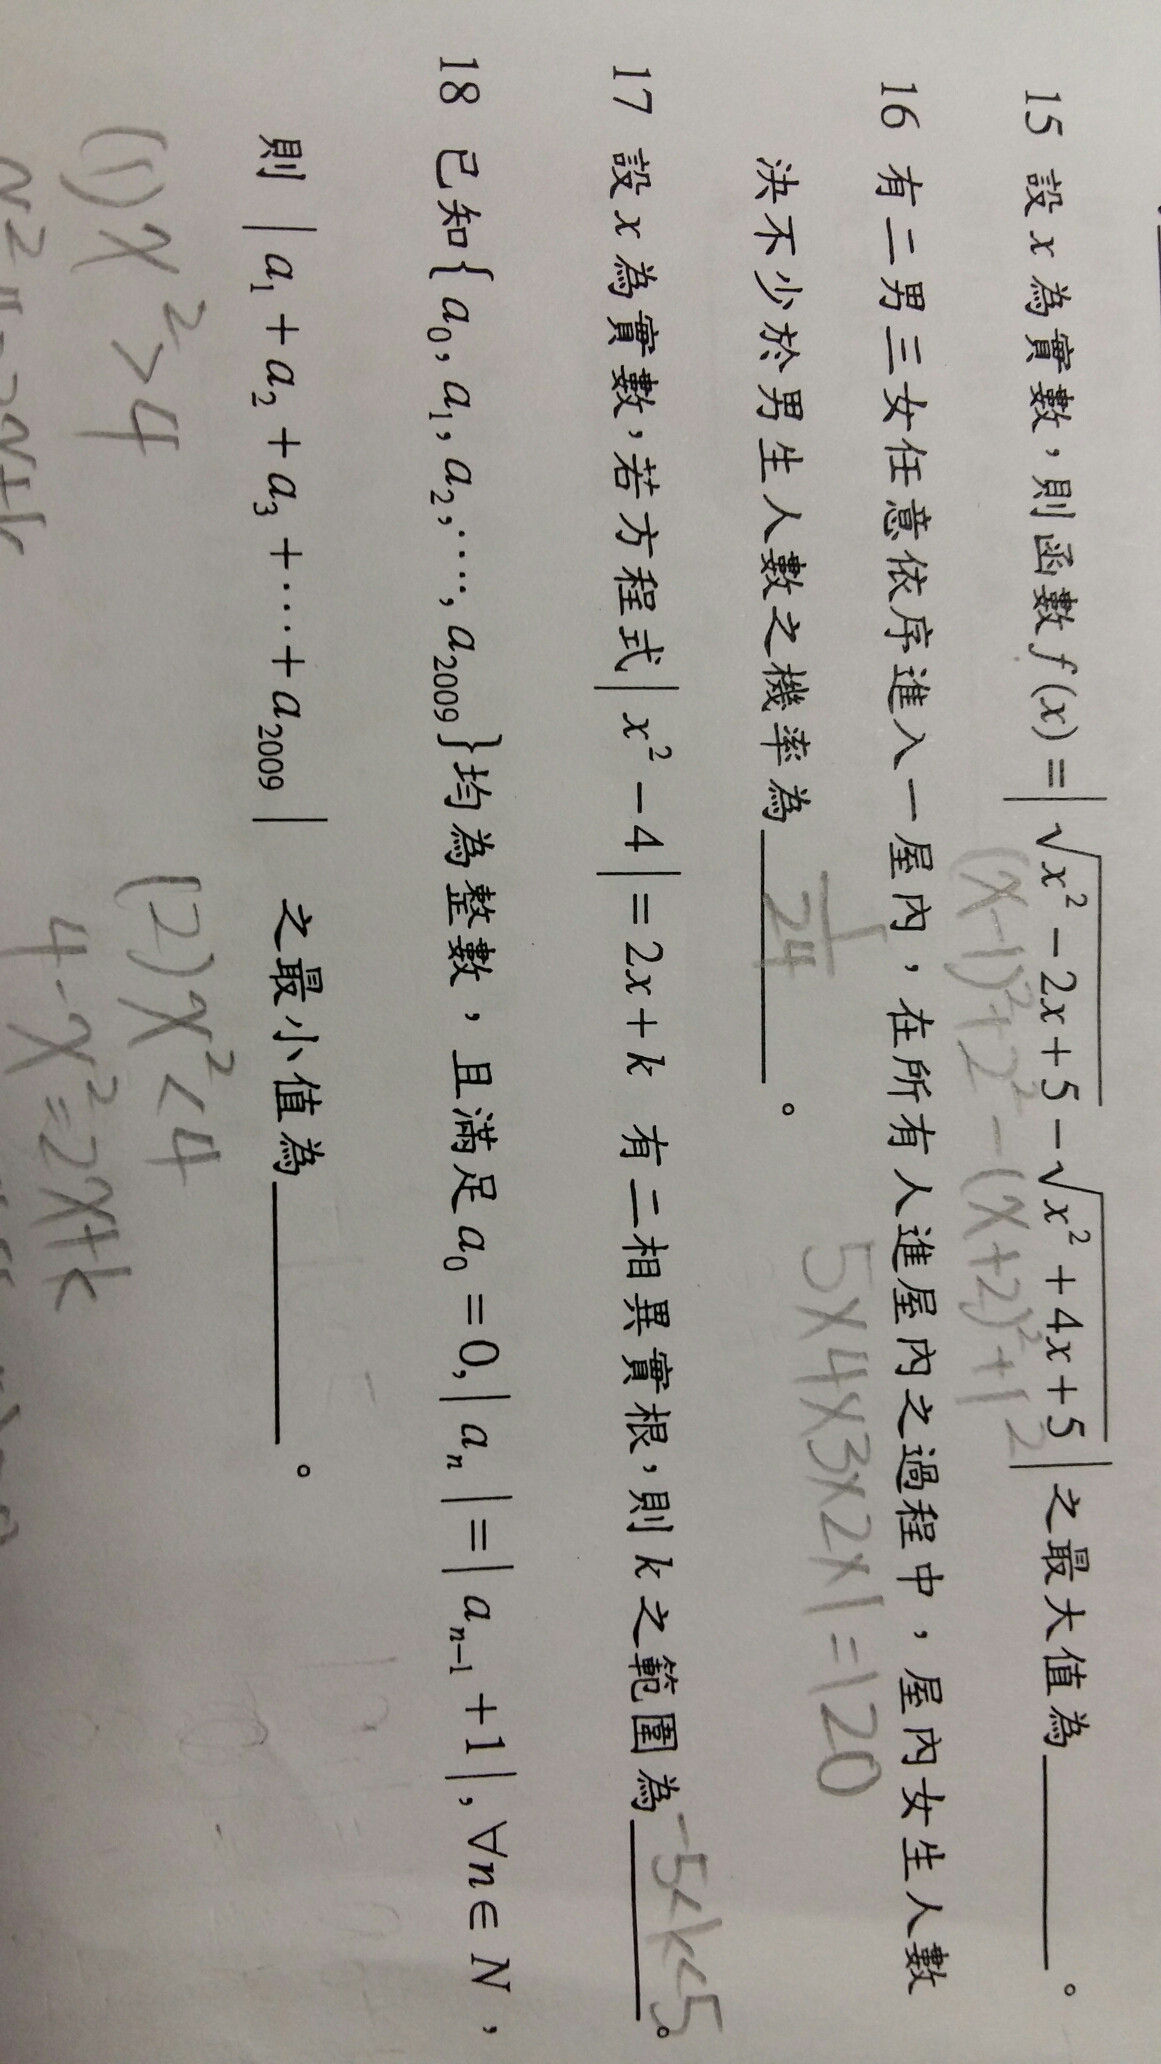 15 設 x 為實數，則函數 f(x)=|√(x²-2x+5)-√(x²+4x+5)| 之最大值為＿＿＿＿。
(x-1)²+2²-(x+2)²+1²
16 有二男三女任意依序進入一屋內，在所有人進屋內之過程中，屋內女生人數
決不少於男生人數之機率為＿＿＿＿。
1/24
5×4×3×2×1=120
17 設 x 為實數，若方程式|x²-4|=2x+k 有二相異實根，則 k 之範圍為＿＿＿＿。
-5<k<5
18 已知{a₀,a₁,a₂,⋯,a₂₀₀₉}均為整數，且滿足 a₀=0,|aₙ|=|aₙ₋₁+1|,∀n∈N，
則 |a₁+a₂+a₃+⋯+a₂₀₀₉| 之最小值為＿＿＿＿。
(1) x²>4
(2) x²<4
4-x²=2x+k